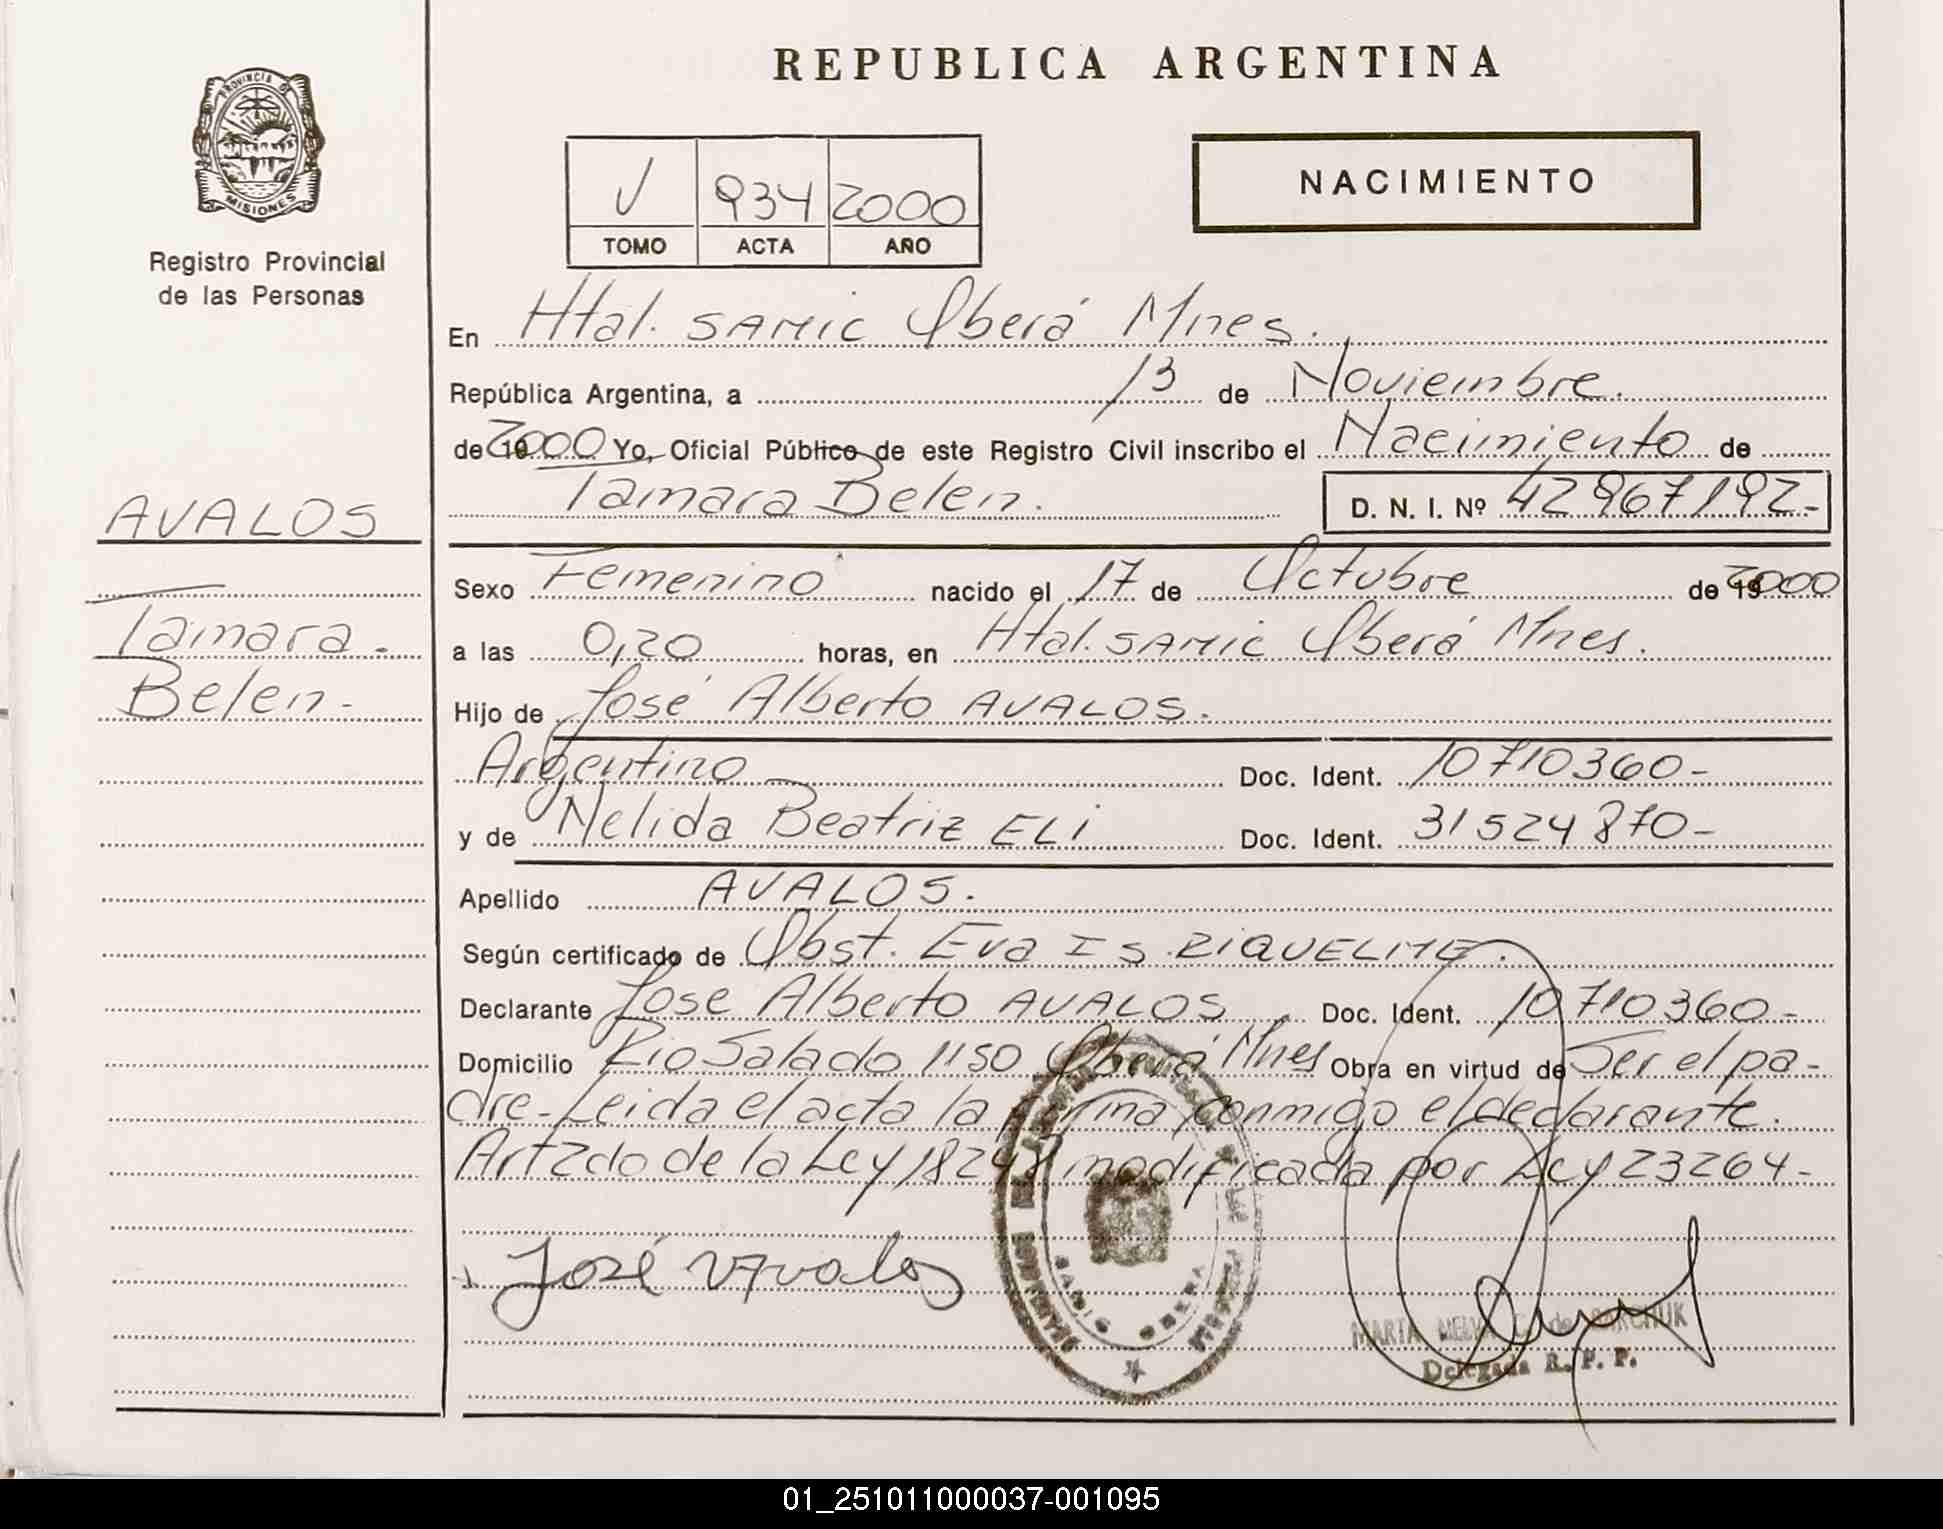 REPUBLICA ARGENTINA
PROVINCIA DE
MISIONES
Registro Provincial
de las Personas
V 934 2000
TOMO ACTA AÑO
NACIMIENTO
En Htal. SAMIC Oberá Mnes.
República Argentina, a 13 de Noviembre.
de 19 2000 Yo, Oficial Público de este Registro Civil inscribo el Nacimiento de
Tamara Belen. D. N. I. Nº 42967192-
AVALOS
Tamara.
Belen-
Sexo Femenino nacido el 17 de Octubre de 19 2000
a las 0,20 horas, en Htal. SAMIC Oberá Mnes.
Hijo de José Alberto AVALOS.
Argentino Doc. Ident. 10710360-
y de Nelida Beatriz ELI Doc. Ident. 31524870-
Apellido AVALOS.
Según certificado de Obst. Eva IS. RIQUELME.
Declarante Jose Alberto AVALOS Doc. Ident. 10710360-
Domicilio Rio Salado 1150 Oberá Mnes Obra en virtud de Ser el pa-
dre-Leida el acta la firma conmigo el declarante.
Art 2do de la Ley 18248 modificada por Ley 23264-
José Avalos
OBERA
MARTA MELVA C. de SAWCHUK
Delegada R. P. P.
01_251011000037-001095